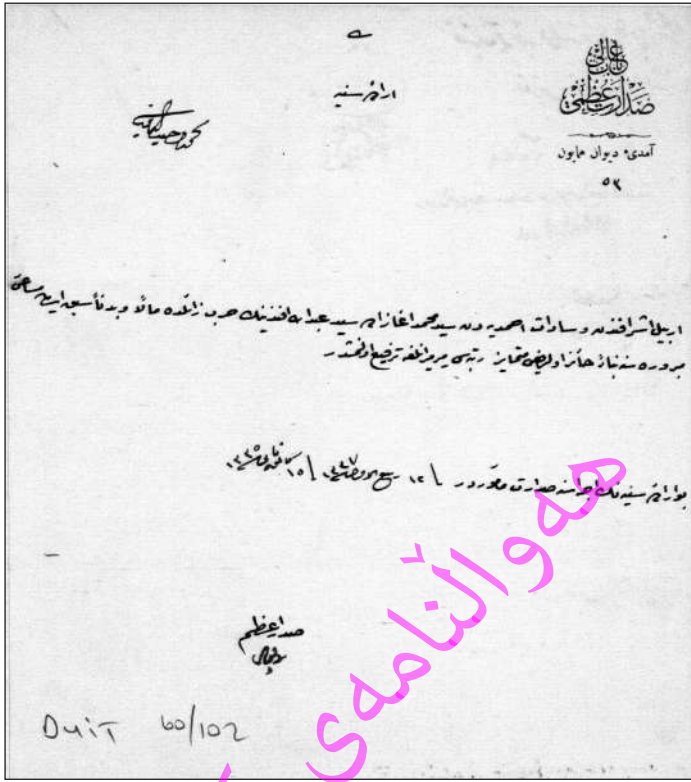 باب عالی
صدارت عظمی
آمدی دیوان همایون
٥٣
اراده سنیه
محمد وحید الدین
اربیل اشرافندن و سادات احمدیه دن سید محمد اغا زاده سید عبدالله افندینك حرب زائلده مالاً و بدناً سبق ایدن
مبروره سنه بناءً حائز اولدیغی متمایز رتبه سی میرمیرانلغه ترفیع اولنمشدر
بو اراده سنیه نك اجراسنه صدارت مأموردر
١٢ ربیع
١٥
صدر اعظم
DUİT 60/102
هەواڵنامەی